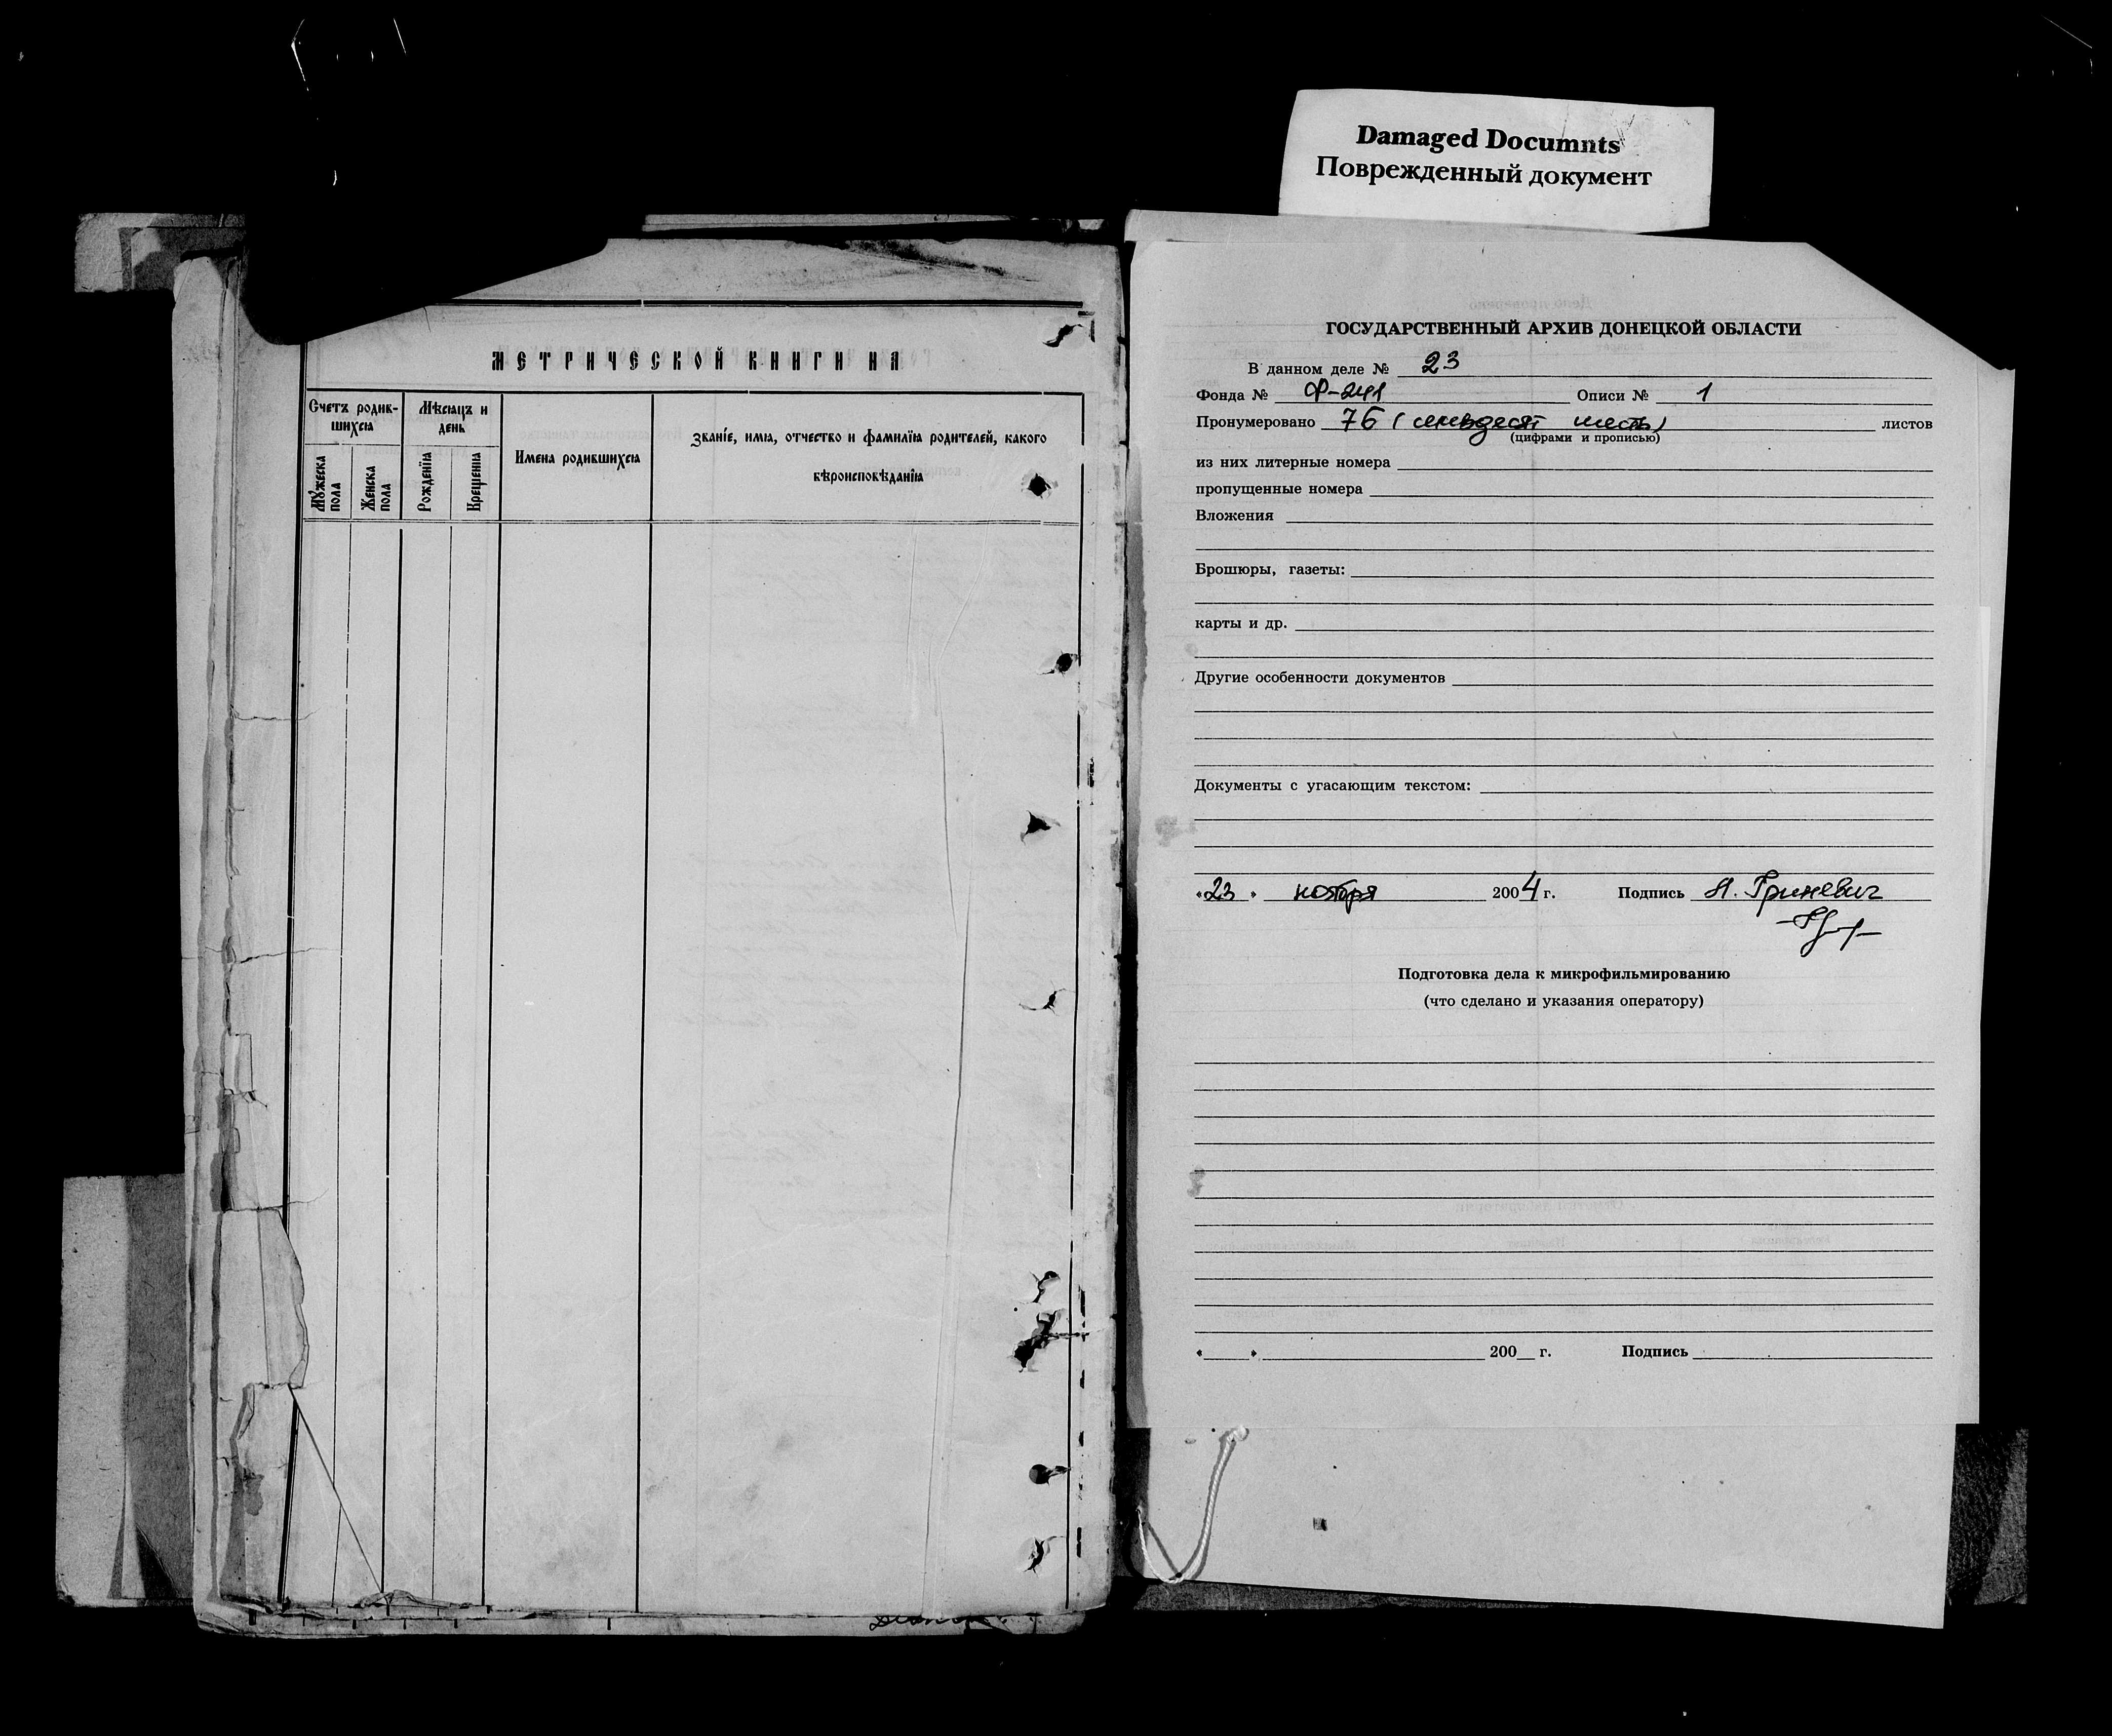 Damaged Documnts
Поврежденный документ
МЕТРИЧЕСКОЙ КНИГИ НА
Счетъ родив-
шихсѧ
Мѣсѧцъ и
день
Имена родившихсѧ
Званїе, имѧ, отчество и фамилїѧ родителей, какого
вѣроисповѣданїѧ
Мꙋжеска
пола
Женска
пола
Рожденїѧ
Крещенїѧ
ГОСУДАРСТВЕННЫЙ АРХИВ ДОНЕЦКОЙ ОБЛАСТИ
В данном деле № 23
Фонда № Ф-241 Описи № 1
Пронумеровано 76 (семьдесят шесть) листов
(цифрами и прописью)
из них литерные номера
пропущенные номера
Вложения
Брошюры, газеты:
карты и др.
Другие особенности документов
Документы с угасающим текстом:
«23» ноября 2004 г. Подпись Н. Гриневич
Подготовка дела к микрофильмированию
(что сделано и указания оператору)
« » 200 г. Подпись